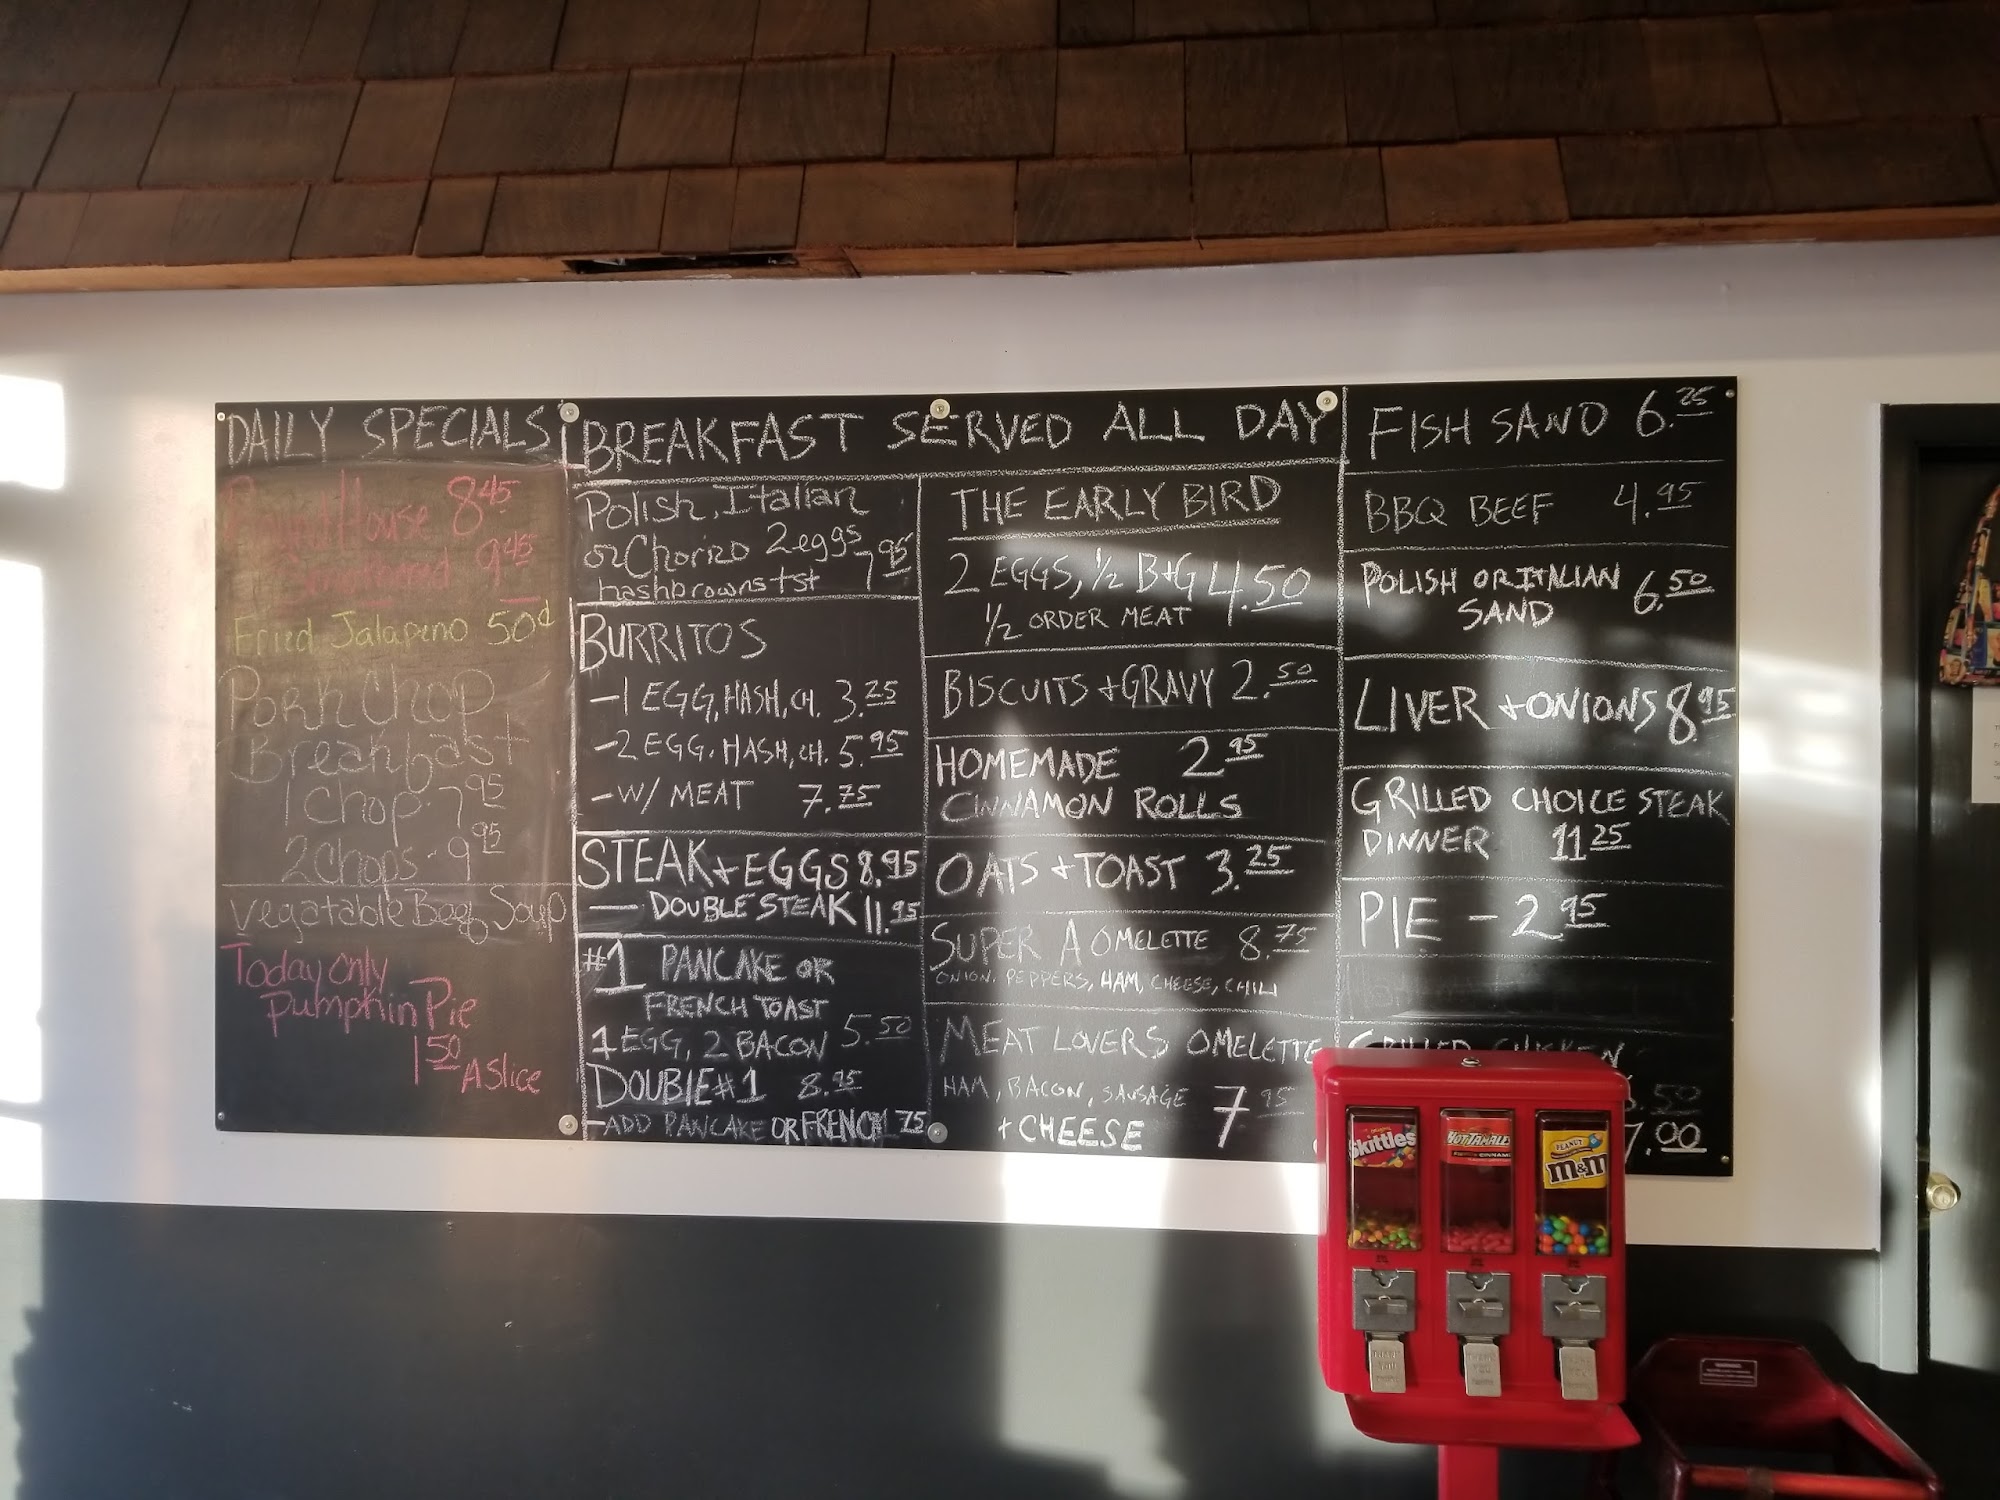 DAILY SPECIALS
House 8.45
9.45
Fried Jalapeno 50¢
Pork Chop
Breakfast
1 Chop - 7.95
2 Chops - 9.95
Vegatable Beef Soup
Today only
Pumpkin Pie
1.50 A Slice
BREAKFAST SERVED ALL DAY
Polish, Italian
or Chorizo 2 eggs
hashbrowns tst 7.95
BURRITOS
- 1 EGG, HASH, CH. 3.25
- 2 EGG, HASH, CH. 5.95
- W/ MEAT 7.75
STEAK + EGGS 8.95
— DOUBLE STEAK 11.95
#1 PANCAKE OR
FRENCH TOAST
1 EGG, 2 BACON 5.50
DOUBLE #1 8.95
- ADD PANCAKE OR FRENCH .75
THE EARLY BIRD
2 EGGS, 1/2 B+G 4.50
1/2 ORDER MEAT
BISCUITS + GRAVY 2.50
HOMEMADE 2.95
CINNAMON ROLLS
OATS + TOAST 3.25
SUPER A OMELETTE 8.75
ONION, PEPPERS, HAM, CHEESE, CHILI
MEAT LOVERS OMELETTE
HAM, BACON, SAUSAGE 7.95
+ CHEESE
FISH SAND 6.25
BBQ BEEF 4.95
POLISH OR ITALIAN
SAND 6.50
LIVER + ONIONS 8.95
GRILLED CHOICE STEAK
DINNER 11.25
PIE - 2.95
GRILLED CHICKEN
.50
7.00
Skittles
HOT TAMALES
PEANUT
m&m